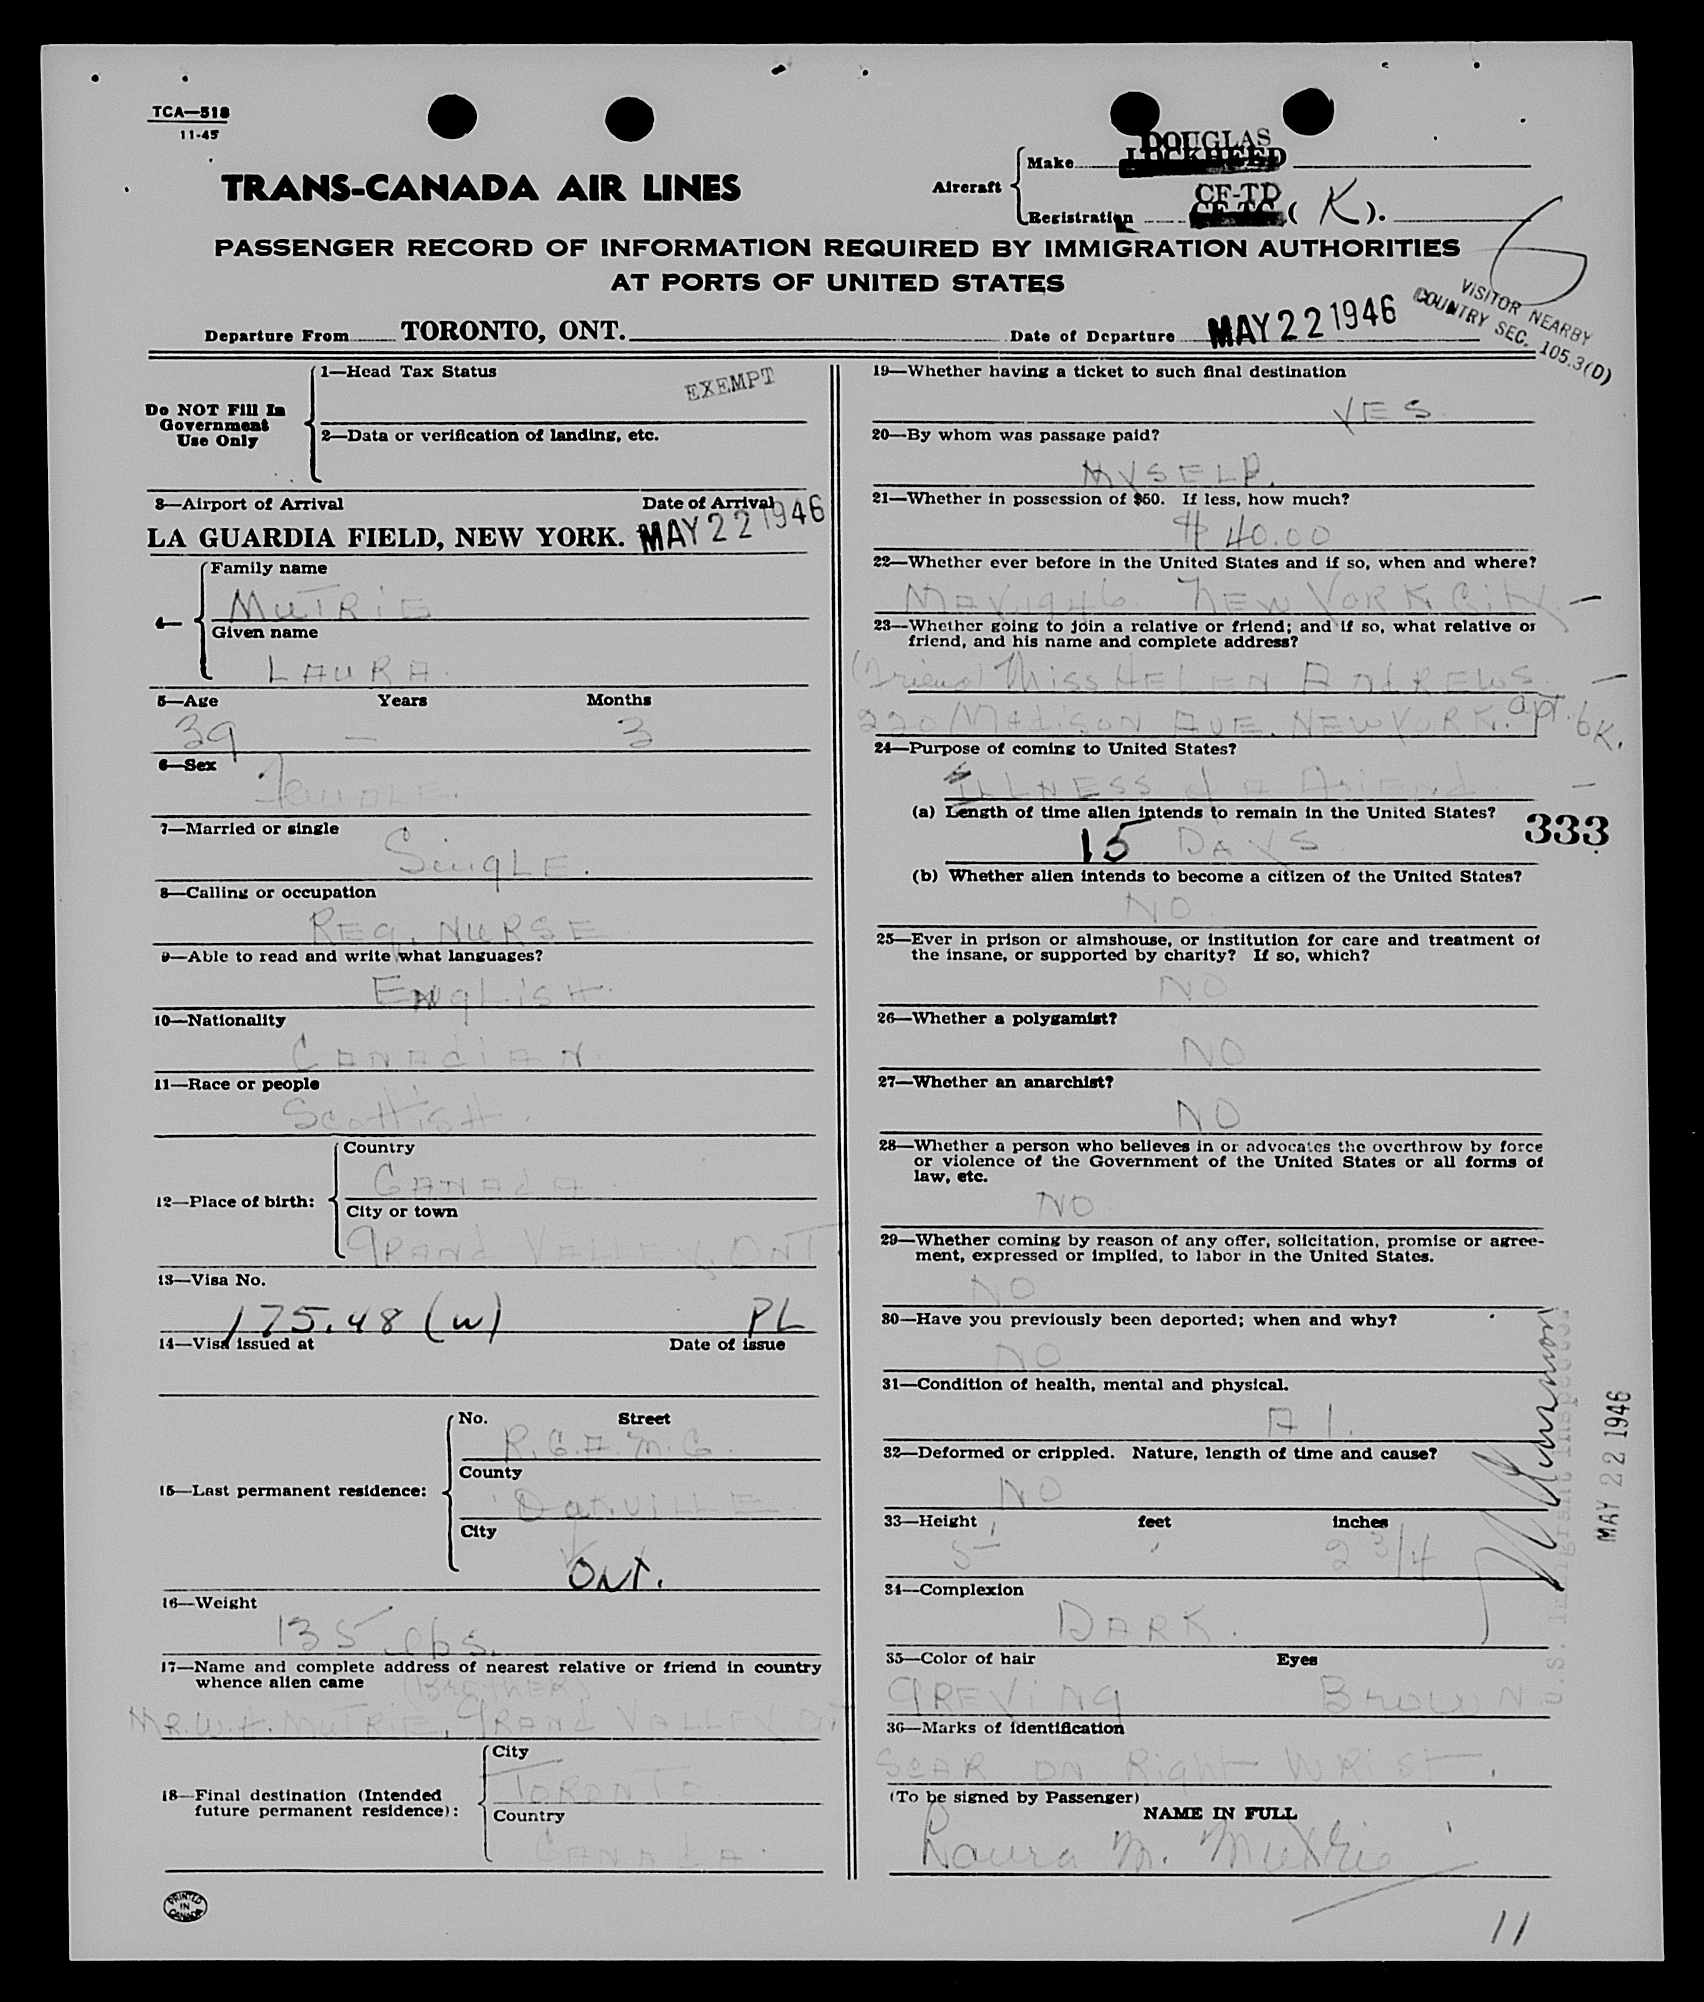 TCA—518
11-45
TRANS-CANADA AIR LINES
Aircraft
Make DOUGLAS
LOCKHEED
Registration CF-TD
CF-TC ( K ).
PASSENGER RECORD OF INFORMATION REQUIRED BY IMMIGRATION AUTHORITIES
AT PORTS OF UNITED STATES
VISITOR NEARBY
COUNTRY SEC. 105.3(D)
Departure From TORONTO, ONT.
Date of Departure MAY 22 1946
Do NOT Fill In
Government
Use Only
1—Head Tax Status
EXEMPT
2—Data or verification of landing, etc.
3—Airport of Arrival Date of Arrival
LA GUARDIA FIELD, NEW YORK. MAY 22 1946
4—
Family name
MUTRIE
Given name
LAURA.
5—Age Years Months
39 — 3
6—Sex
Female.
7—Married or single
SingLE.
8—Calling or occupation
REg. NURSE
9—Able to read and write what languages?
ENgLisH.
10—Nationality
CANAdIAN.
11—Race or people
ScottisH.
12—Place of birth:
Country
CANAdA.
City or town
gRANd VALLEY, ONT.
13—Visa No.
175.48 (w) PL
14—Visa issued at Date of issue
15—Last permanent residence:
No. Street
R.C.A.M.C.
County
OakVILLE.
City
ONT.
16—Weight
135 lbs.
17—Name and complete address of nearest relative or friend in country
whence alien came
(BROTHER)
MR. W. H. MUTRIE, gRANd VALLEY, ONT
18—Final destination (Intended
future permanent residence):
City
TORONTO
Country
CANADA.
19—Whether having a ticket to such final destination
YES.
20—By whom was passage paid?
MYSELF.
21—Whether in possession of $50. If less, how much?
$ 40.00
22—Whether ever before in the United States and if so, when and where?
MAY. 1946. NEW YORK City. –
23—Whether going to join a relative or friend; and if so, what relative or
friend, and his name and complete address?
(Friend) Miss HELEN ANdREWS. –
220 MAdisoN AVE. NEW YORK. apt. 6K.
24—Purpose of coming to United States?
ILLNESS of A Friend. –
(a) Length of time alien intends to remain in the United States?
15 DAYS
333
(b) Whether alien intends to become a citizen of the United States?
NO.
25—Ever in prison or almshouse, or institution for care and treatment of
the insane, or supported by charity? If so, which?
NO
26—Whether a polygamist?
NO
27—Whether an anarchist?
NO
28—Whether a person who believes in or advocates the overthrow by force
or violence of the Government of the United States or all forms of
law, etc.
NO.
29—Whether coming by reason of any offer, solicitation, promise or agree-
ment, expressed or implied, to labor in the United States.
NO
30—Have you previously been deported; when and why?
NO
31—Condition of health, mental and physical.
A 1.
32—Deformed or crippled. Nature, length of time and cause?
NO
33—Height feet inches
5' 2 3/4
34—Complexion
DARK.
35—Color of hair Eyes
gREYiNg BrowN.
36—Marks of identification
SCAR ON Right WRist.
(To be signed by Passenger)
NAME IN FULL
Laura M. Mutrie
U.S. Immigrant Inspector
MAY 22 1946
PRINTED
IN
CANADA
11